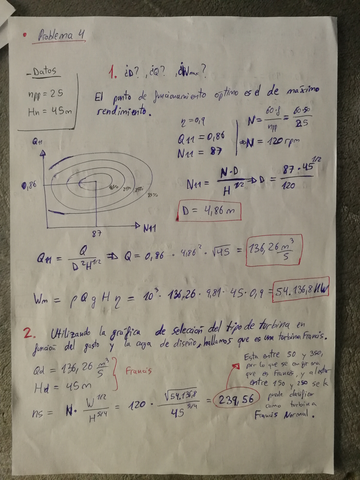 • Problema 4
- Datos
npp = 25
Hn = 45m
1. ¿D? ¿Q? ¿Wm?
El punto de funcionamiento optimo es el de maximo
rendimiento.
η = 0,9
Q11 = 0,86
N11 = 87
N = 60·f / npp = 60·50 / 25
N = 120 rpm
Q11
0,86
87
N11
N11 = N·D / H^1/2 ⇒ D = 87·45^1/2 / 120
D = 4,86 m
Q11 = Q / D²H^1/2 ⇒ Q = 0,86 · 4,86² · √45 = 136,26 m³/s
Wm = ρ Q g H η = 10³ · 136,26 · 9,81 · 45 · 0,9 = 54.136,8 kW
2. Utilizando la gráfica de selección del tipo de turbina en
función del gasto y la carga de diseño, hallamos que es un turbina Francis.
Qd = 136,26 m³/s
Hd = 45m
Francis
ns = N · W^1/2 / H^5/4 = 120 · √54.136,8 / 45^5/4 = 239,56
Esta entre 50 y 350,
por lo que se
que es Francis, y al estar
entre 150 y 250 se le
puede clasificar
como turbina
Francis Normal.